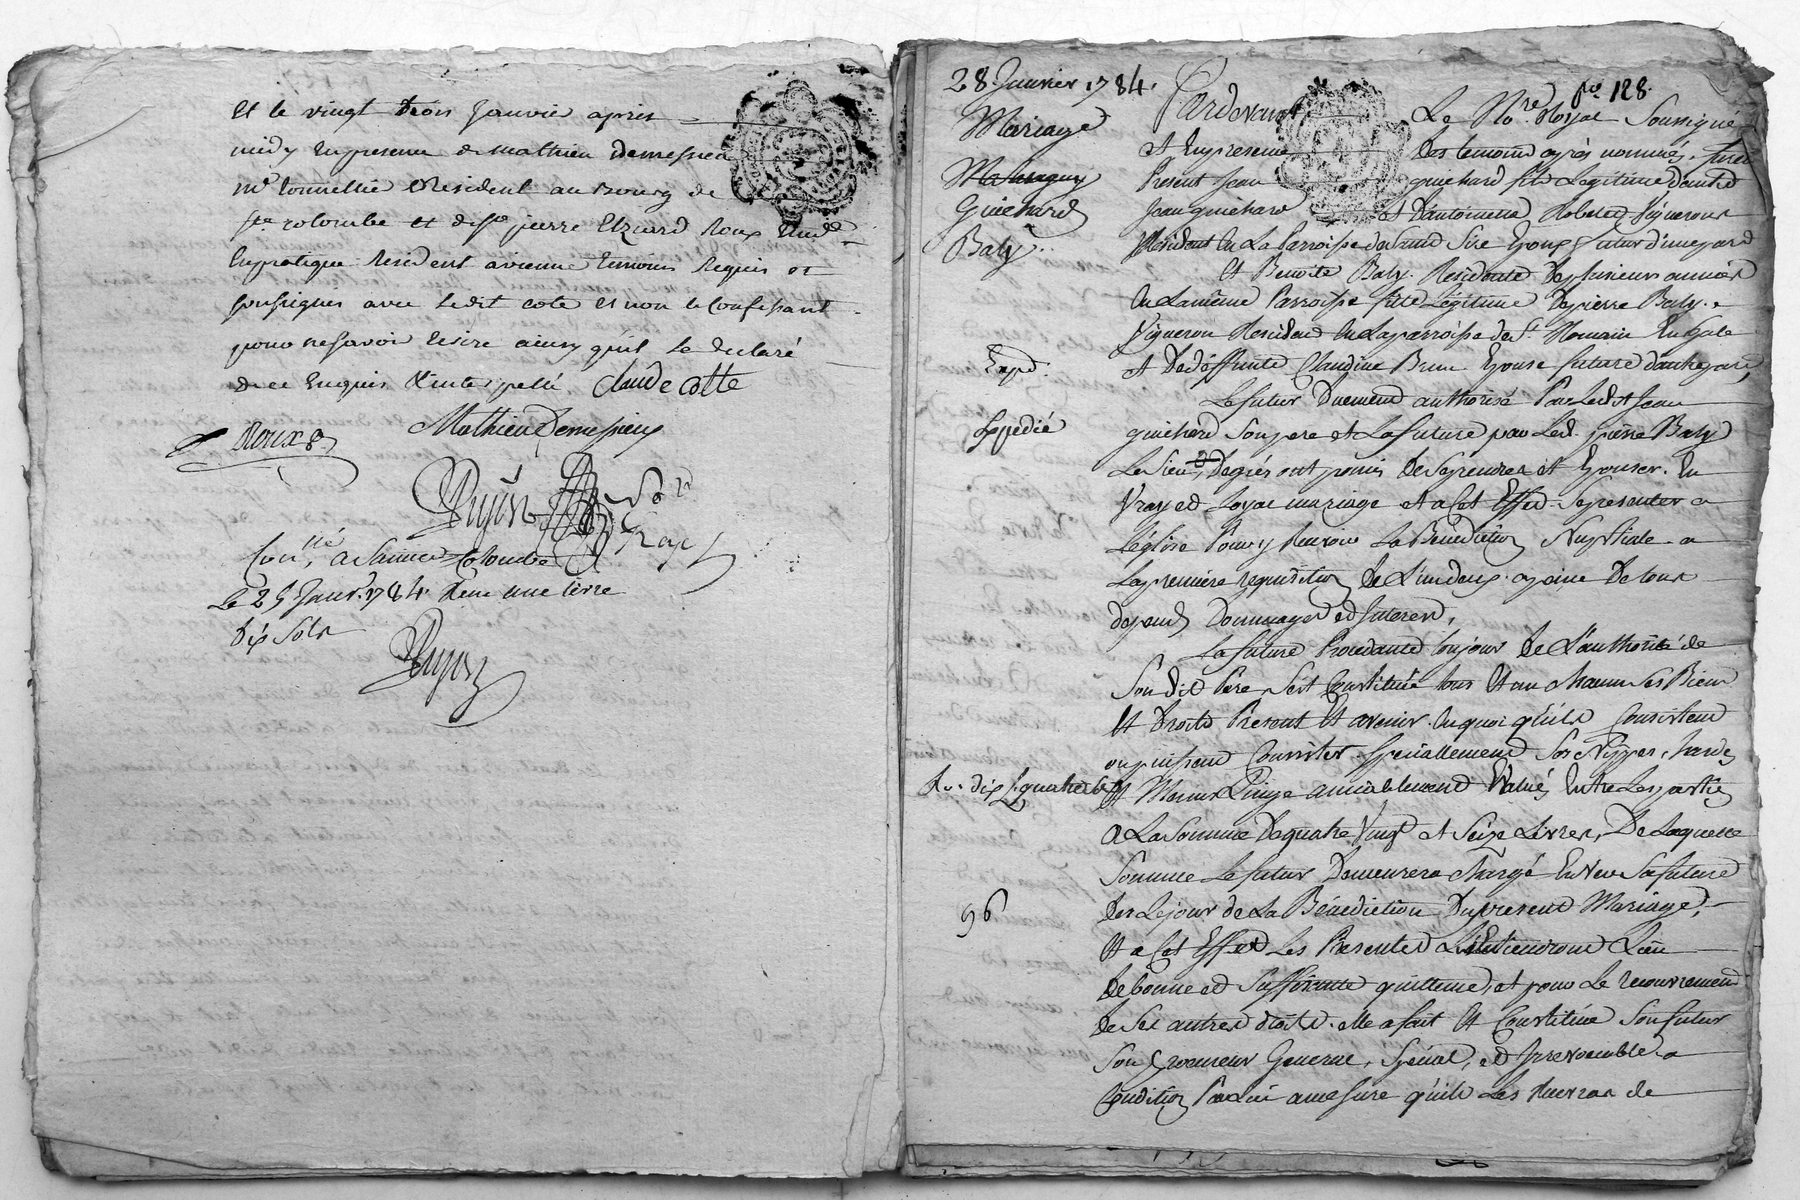 Et le vingt trois Janvier après
midy En presence de Mathieu Demessieu
md tonnellier Resident au Bourg de
Ste colombe et de Sr pierre Elzeard Roux
En pratique Resident a vienne temoins Requis et
soussignés avec ledit cote et non le Confessant
pour ne savoir Ecrire ainsy qu'il la declaré
de ce Enquis & interpellé Claude Cotte
Roux
Mathieu Demessieux
Pujon
Con.llé a Sainte Colombe
Le 25 Janv. 1784. Reçu une livre
dix sols
Pujon
fo. 128.
28. Janvier 1784.
Mariage
Guichard
Baly
Expd.
Expedié
R. dix L. quatre
96
Pardevant Le No.re Royal Soussigné
et En presence Des temoins après nommés. furent
Present Jean guichard fils Legitime d'autre
Jean guichard et d'antoinette Robeted Vigneron
Resident En La Parroisse de Saint Sire Epoux futur d'une part
Et Benoite Baly. Residente Depuis plusieurs années
En La même Parroisse fille Legitime De pierre Baly.
Vigneron Resident En La parroisse de St. Romain En gale
et De déffunte Claudine Brun Epouse future d'autre part,
Le futur Duement authorisé Par Ledit Jean
guichard Son pere et La future par Led. pierre Baly
Le Sien, De gré ont promis De Se prendre et Epouser. En
Vray et Loyal mariage et a Cet Effet Se presenter a
L'église Pour y Recevoir La Bénédiction Nuptiale a
La première requisition De L'un deux. a peine De tous
depends Dommages et Interets,
La future Procedante toujours De L'authorité de
Son dit Père, S'est Constituée tous Et un chacun Ses Biens
Et Droits Present Et avenir. En quoi qu'ils Consistent
ou puissent Consister Spéciallement Ses Nippes, hardes
Et Menus Linge amiablement Evalués Entre Les parties
a La Somme De quatre Vingt et Seize Livres, De Laquelle
Somme Le futur Demeurera chargé Envers Sa future
Des Le jour de La Bénédiction Du present Mariage,
Et a Cet Effet Les Presentes Lui tiendront Lieu
De bonne et Suffisante quittance, et pour Le recouvrement
De Ses autres droits. elle a fait Et Constitué Son futur
Son Procureur General, Spécial, et Irrevocable a
Condition Par Lui a mesure qu'il Les Recevra de